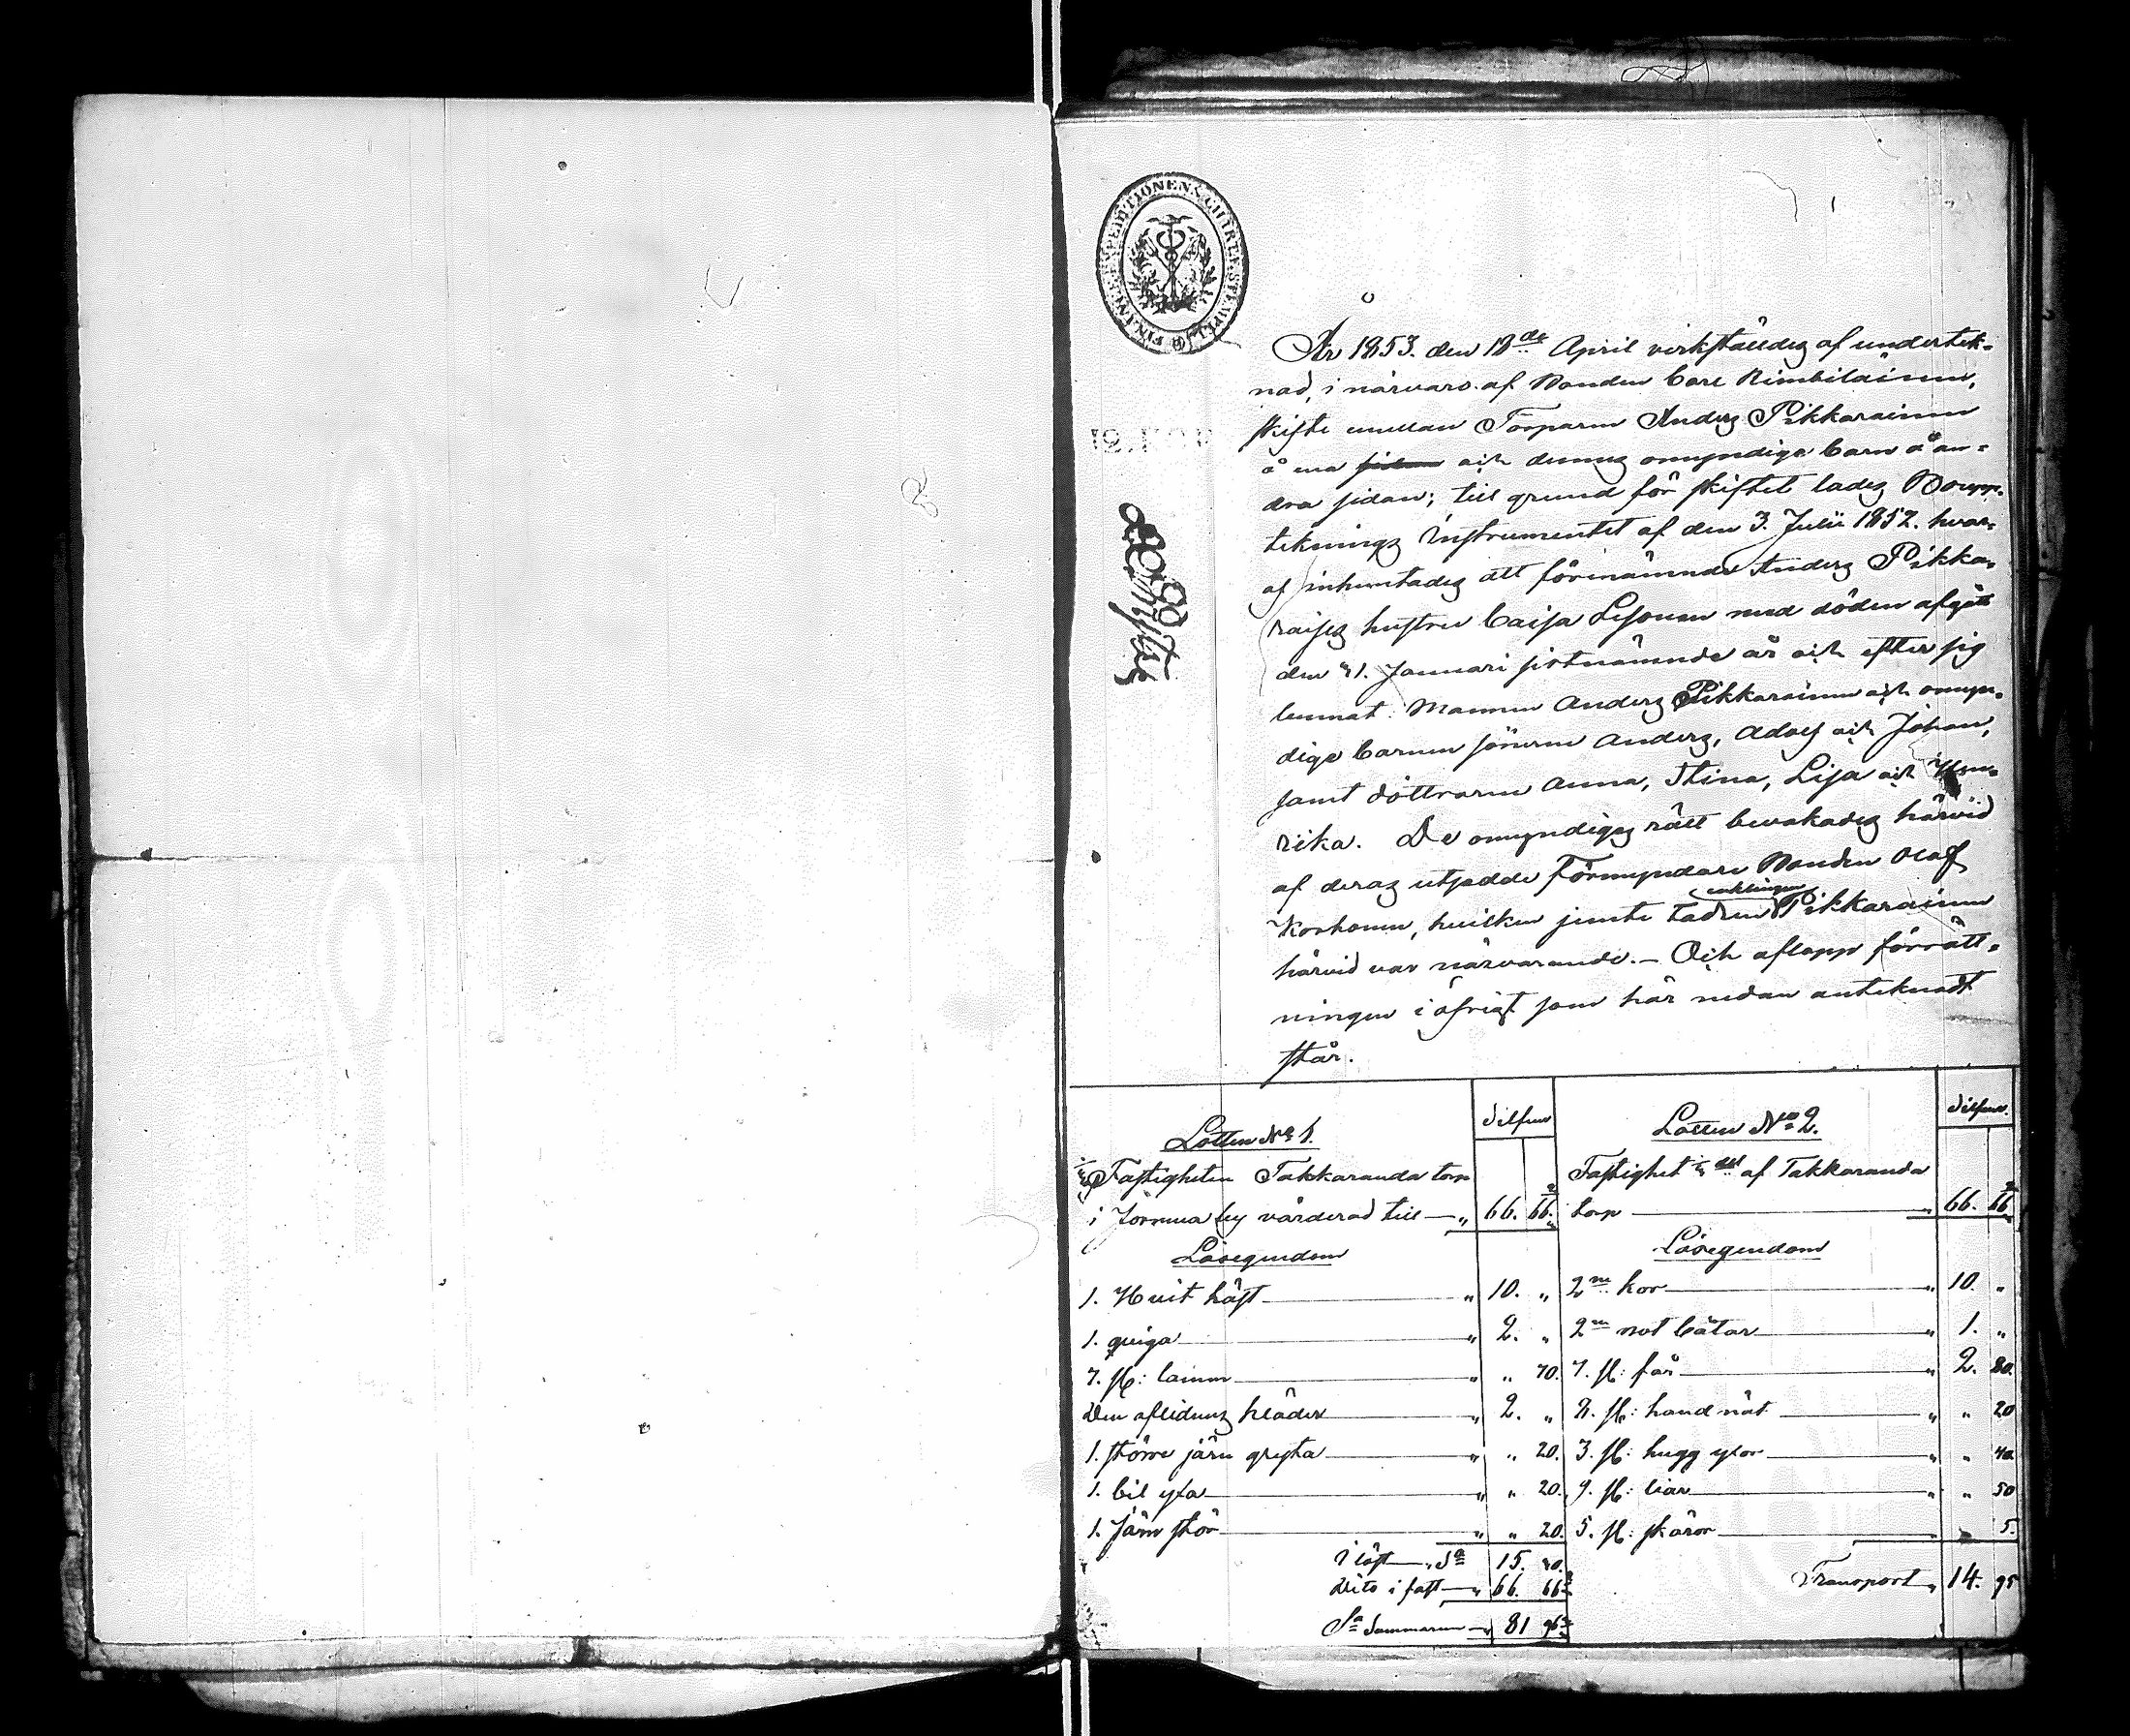 FINANCE EXPEDITIONENS CHARTÆ STEMPEL
År 1853. den 18de April verkställdes af undertek-
nad, i närvaro af Bonden Carl Kimbiläinen,
skifte emellan Torparen Anders Pikkarainen
å ena sidan och dennes omyndiga barn å an-
dra sidan; till grund för skiftet lades Boupp-
teknings Instrumentet af den 3. Julii 1852. hvar-
af inhemtades att förenämnde Anders Pikka-
raises hustru Caisa Lesonen med döden afgått
den 21. Januari sistnämnde år och efter sig
lemnat: Mannen Anders Pikkarainen och omyn-
dige barnen sönerne Anders, Adolf och Johan,
samt döttrarne Anna, Stina, Lisa och Hen-
rika. De omyndiges rätt bevakades härvid
af deras utsedde Förmyndare Bonden Olof
enklingen
Korhonen, hvilken jemte fadren Pikkarainen
härvid var närvarande. - Och aflopp förrätt-
ningen i öfrigt som här nedan anteknadt
står.
Lotten No 1. Silfver
Fastigheten Takkaranda torp
i Jormua by värderad till — " 66. 66 2/3
Lösegendom
1. Hvit häst — " 10. "
1. qviga — " 2. "
7. st: lamm — " " 70.
Den aflidnes kläder — " 2. "
1. större järn gryta — " " 20.
1. bil yxa — " " 20.
1. Järn stör — " " 20.
i löst — Sa 15. 30.
Dito i fast — " 66. 66 2/3
Sa Summarum — 81 96 2/3
Lotten No 2. Silfver.
Fastighet 1/2 del af Takkaranda
torp — " 66. 66 2/3
Lösegendom
2ne kor — " 10. "
2ne not båtar — " 1. "
7. st: får — " 2. 80.
2. st: hand nät — " " 20
3. st: hugg yxor — " " 40
9. st: liar — " " 50
5. st: skäror — " " 5.
Transport " 14. 95